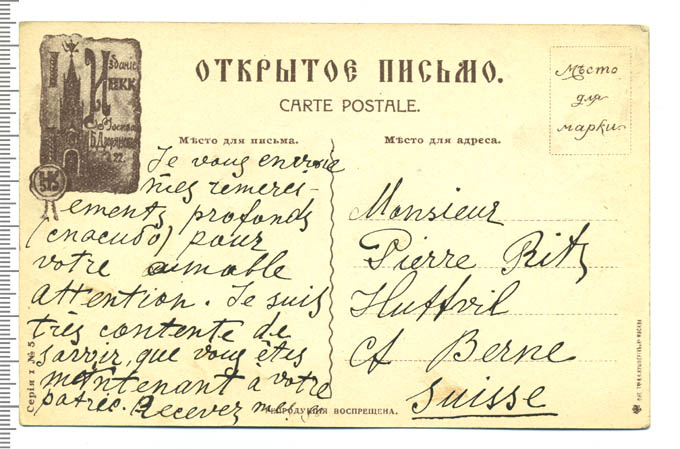 Изданiе
И
Москва
ОТКРЫТОЕ ПИСЬМО.
CARTE POSTALE.
Мѣсто
для
марки
Мѣсто для письма.
Мѣсто для адреса.
Je vous envoie
mes remerci-
ements profonds
(спасибо) pour
votre aimable
attention. Je suis
très contente de
savoir, que vous êtes
maintenant à votre
patrie. Recevez mes
Monsieur
Pierre Ritz
Huttvil
Ct Berne
Suisse
Серiя 1 № 5
РЕПРОДУКЦIЯ ВОСПРЕЩЕНА.